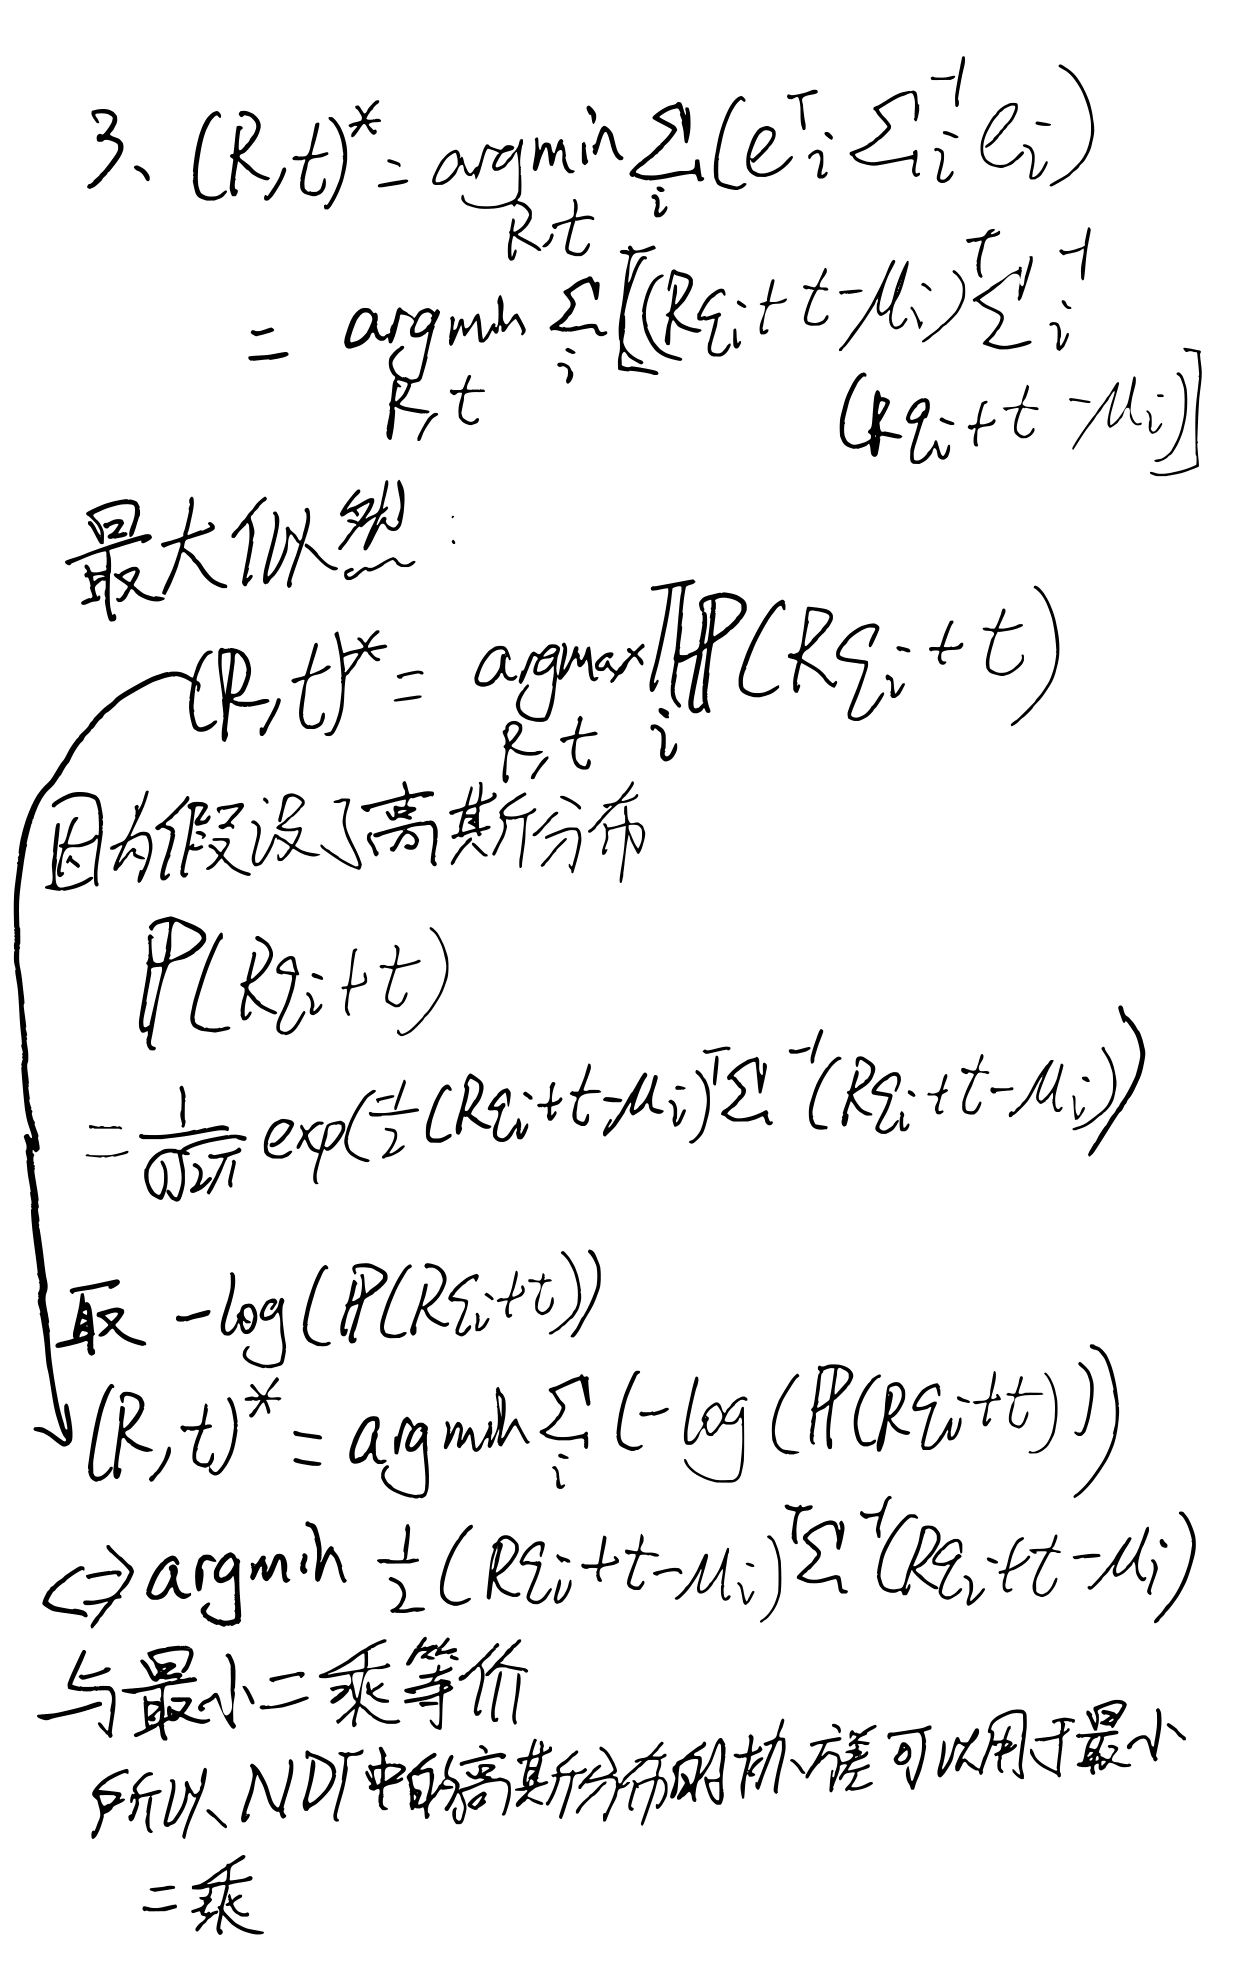 3、(R,t)* = argmin Σ (eᵀᵢ Σᵢ⁻¹ eᵢ)
R,t i
= argmin Σ [(Rqᵢ+t-μᵢ)ᵀ Σᵢ⁻¹
R,t i
(Rqᵢ+t-μᵢ)]
最大似然:
(R,t)* = argmax ∏ ℙ(Rqᵢ+t)
R,t i
因为假设了高斯分布
ℙ(Rqᵢ+t)
= 1/(σ√2π) exp(-1/2 (Rqᵢ+t-μᵢ)ᵀ Σ⁻¹ (Rqᵢ+t-μᵢ))
取 -log(ℙ(Rqᵢ+t))
(R,t)* = argmin Σ (-log(ℙ(Rqᵢ+t)))
i
⇔ argmin 1/2 (Rqᵢ+t-μᵢ)ᵀ Σ⁻¹ (Rqᵢ+t-μᵢ)
与最小二乘等价
所以、NDT中的高斯分布的协方差可以用于最小
二乘